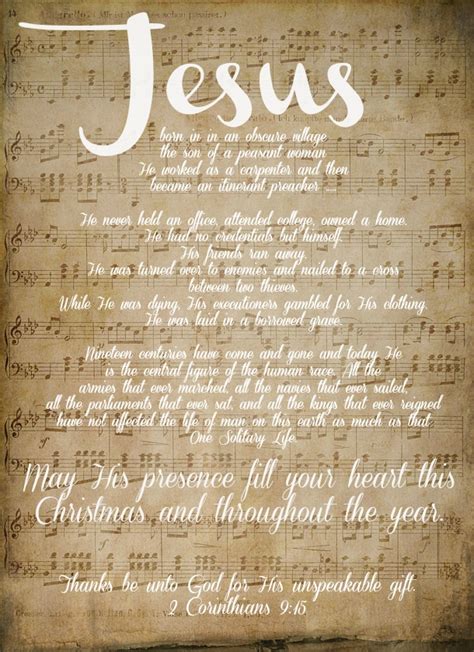 14
Jesus
born in in an obscure village
the son of a peasant woman
He worked as a carpenter and then
became an itinerant preacher ....
He never held an office, attended college, owned a home.
He had no credentials but himself.
His friends ran away.
He was turned over to enemies and nailed to a cross
between two thieves.
While He was dying, His executioners gambled for His clothing.
He was laid in a borrowed grave.
Nineteen centuries have come and gone and today He
is the central figure of the human race. All the
armies that ever marched, all the navies that ever sailed,
all the parliaments that ever sat, and all the kings that ever reigned
have not affected the life of man on this earth as much as that
One Solitary Life.
May His presence fill your heart this
Christmas and throughout the year.
Thanks be unto God for His unspeakable gift.
2 Corinthians 9:15